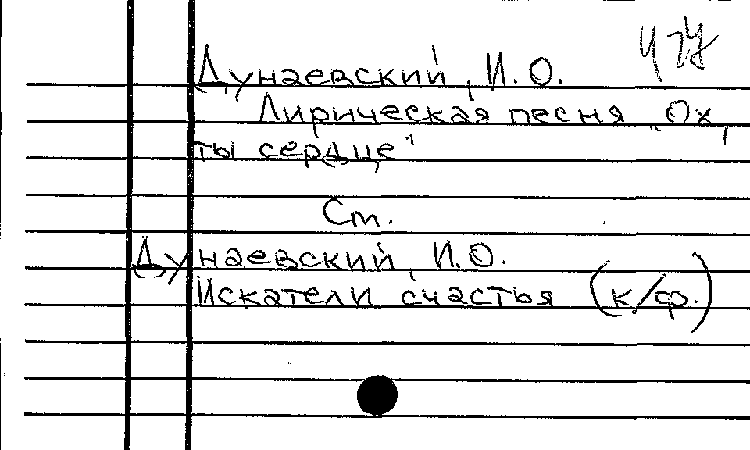 Дунаевский, И. О.
Лирическая песня „Ох,
ты сердце"
См.
Дунаевский, И.О.
Искатели счастья (к/ф.)